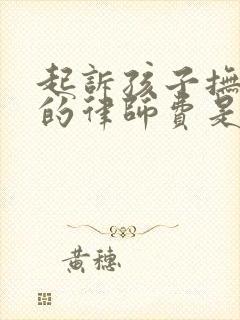 起訴孩子撫
的律師費是
黃穗